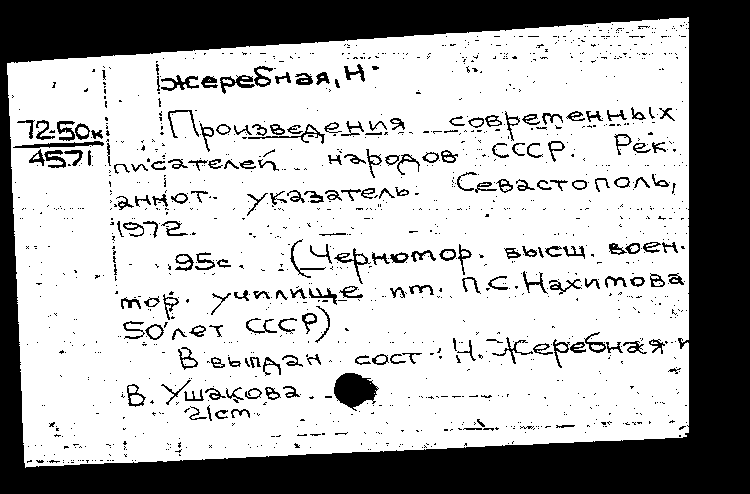 Жеребная, Н.
72-50к
4571
Произведения современных
писателей народов СССР. Рек.
аннот. указатель. Севастополь,
1972.
95с. (Черномор. высш. воен.
мор. училище им. П.С. Нахимова
50 лет СССР).
В вып. дан сост.: Н. Жеребная и
В. Ушакова.
21cm.